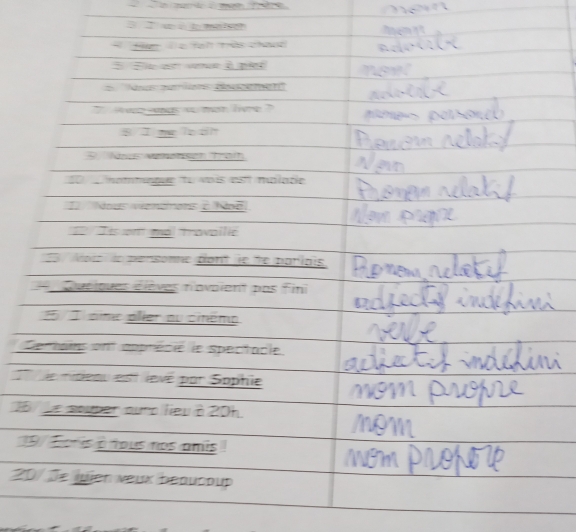 2/ Je parle à mon frère. nom
3/ Il va à la maison nom
4/ Hier, il a fait très chaud adverbe
5/ Elle est venue à pied nom
6/ Nous parlions doucement adverbe
7/ Avez-vous vu mon livre ? personnel
8/ Il me l'a dit Pronom relatif
9/ Nous Nom
10/ L'homme que tu vois est malade Pronom relatif
11/ Nous viendrons à Noël Nom propre
12/ Ils ont mal travaillé
13/ Voici la personne dont je te parlais. Pronom relatif
14. Quelques élèves n'avaient pas fini adjectif indéfini
15/ J'aime aller au cinéma. verbe
Certains ont apprécié le spectacle. adjectif indéfini
17/ Le rideau est levé par Sophie nom propre
18/ Le souper aura lieu à 20h. nom
19/ Écris à tous nos amis ! nom propore
20/ Je veux beaucoup